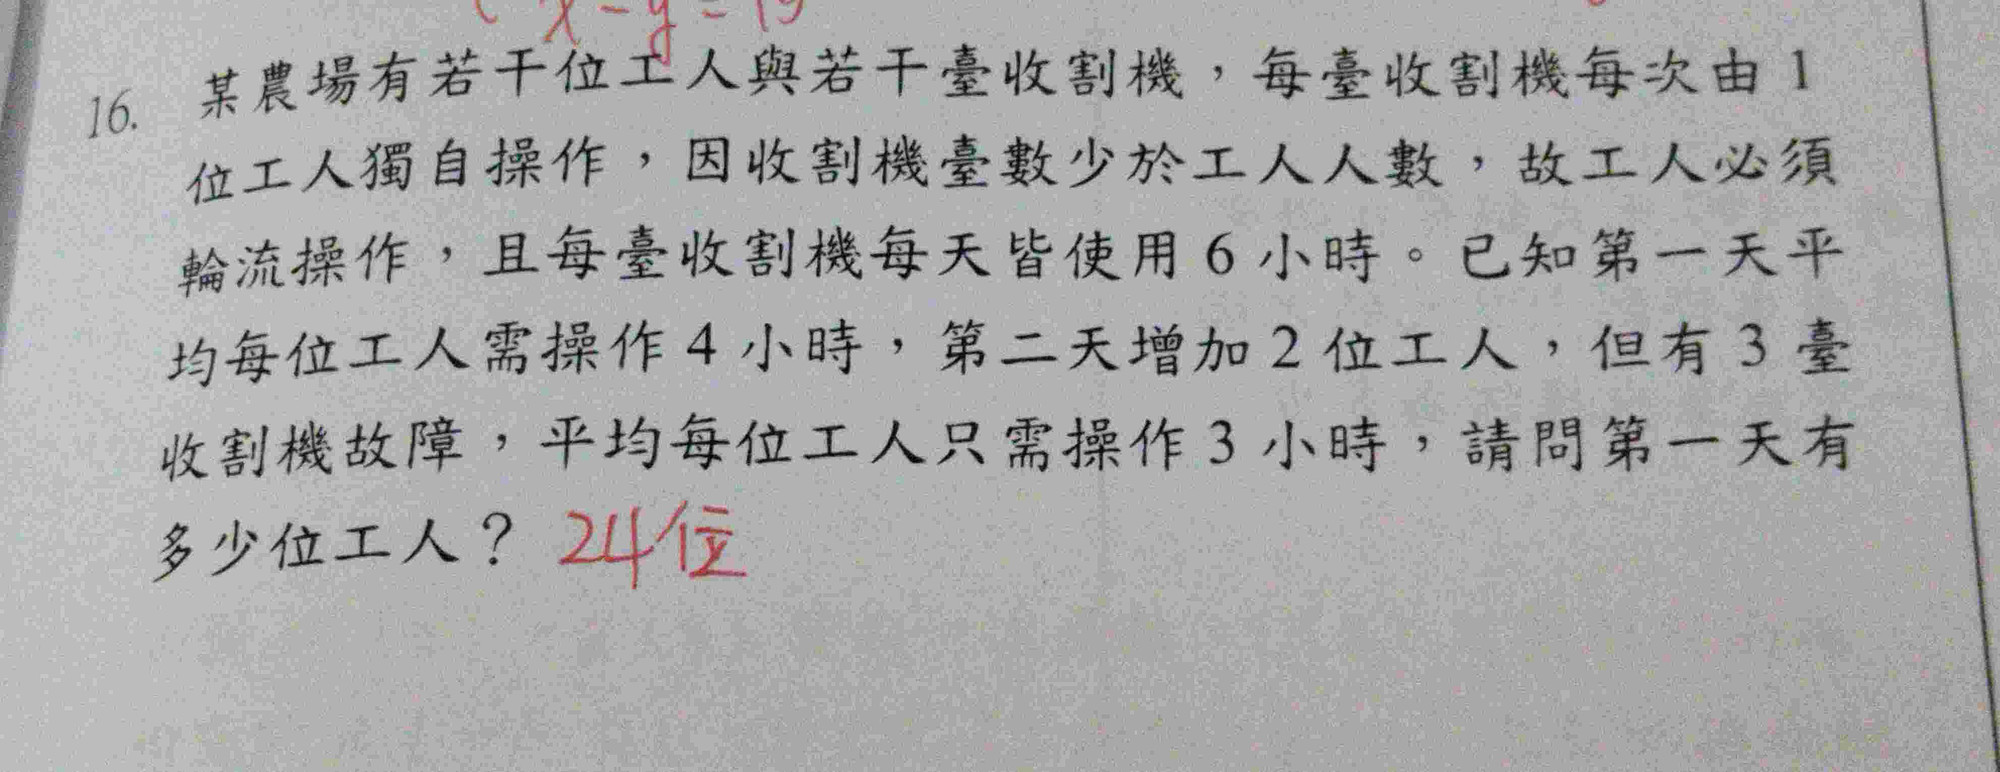 x - y = 19
16. 某農場有若干位工人與若干臺收割機，每臺收割機每次由1
位工人獨自操作，因收割機臺數少於工人人數，故工人必須
輪流操作，且每臺收割機每天皆使用6小時。已知第一天平
均每位工人需操作4小時，第二天增加2位工人，但有3臺
收割機故障，平均每位工人只需操作3小時，請問第一天有
多少位工人？ 24位